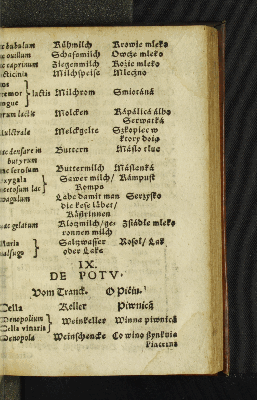 ac bubulum Kühmilch Krowie mleko
ac ouillum Schafsmilch Owcze mleko
ac caprinum Ziegenmilch Kozie mleko
acticinia Milchspeise Mleczno
remor lactis Milchrom Smiotana
erum lactis Molcken Kapalica albo
Serwatka
ulctrale Melckgelte Szkopiec w
ktory doią
ac densare in Buttern Masło tluc
butyrum
ac serosum Buttermilch Maslenka
oxygala Sawer milch/ Kampust
acetosum lac Komps
oagulum Labe damit man Serzysko
die kese labet/
ac gelatum ronnen milch Zsiadłe mleko
Muria Saltzwasser Rosoł/ Lak
oder Lake
IX.
DE POTV.
Vom Tranck. O Piciu.
Cella Keller Piwnica
Oenopolium Weinkeller Winna piwnica
Cella vinaria
Oenopola Weinschencke Co wino